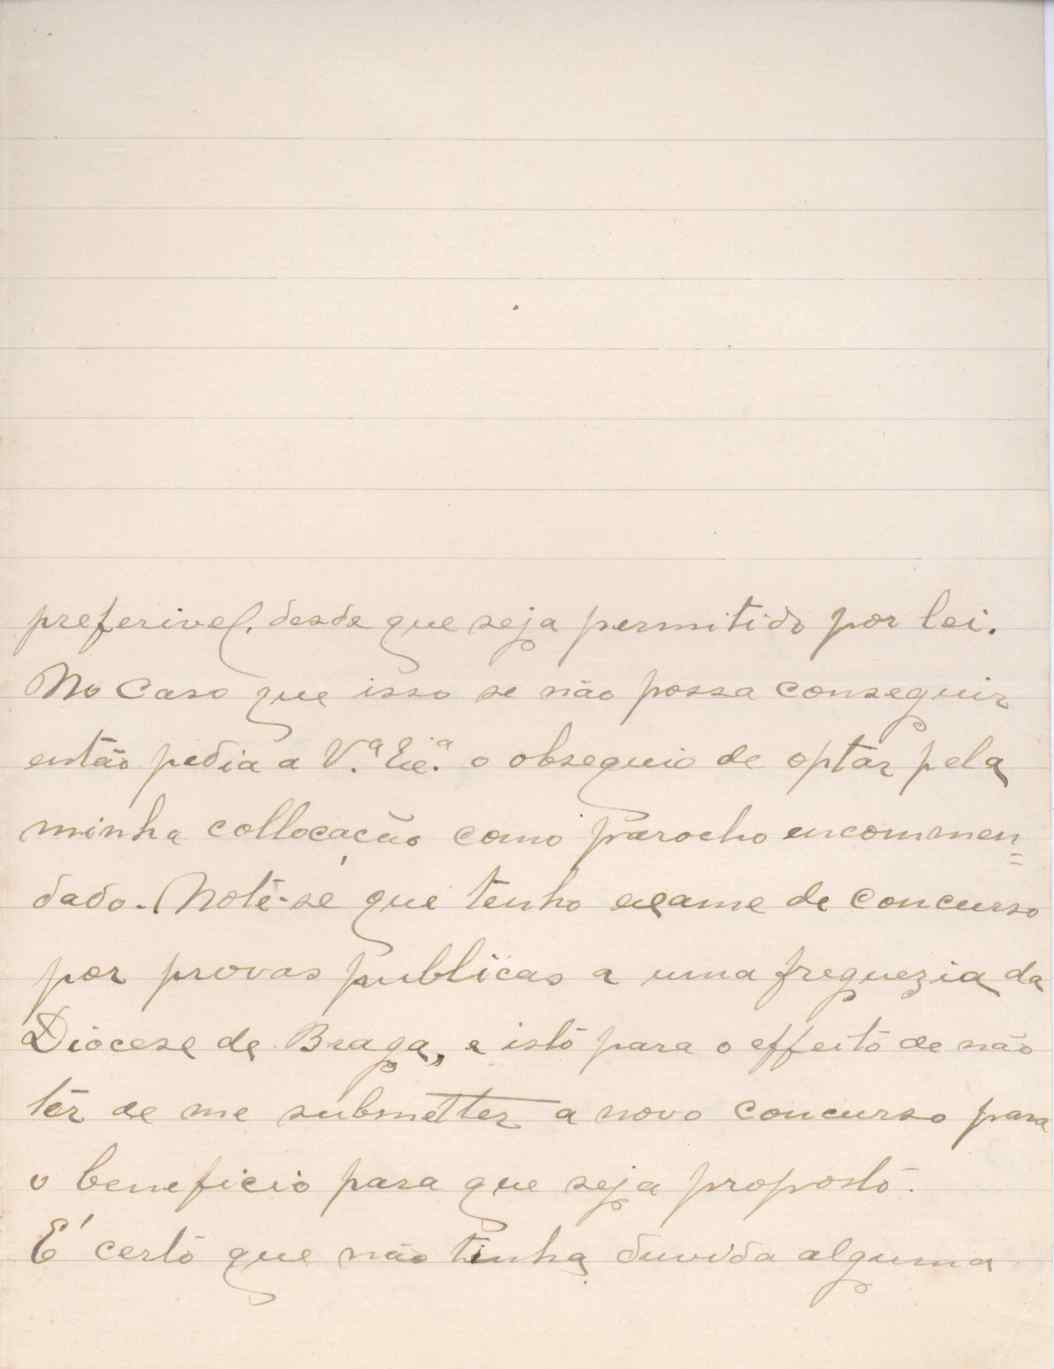 preferivel, desde que seja permitido por lei.
No caso que isso se não possa conseguir
então pedia a V.ª Ex.ª o obsequio de optar pela
minha collocação como parocho encommen=
dado. Note-se que tenho exame de concurso
por provas publicas a uma freguezia da
Diocese de Braga, e isto para o effeito de não
ter de me submetter a novo concurso para
o beneficio para que seja proposto.
É certo que não tinha duvida alguma